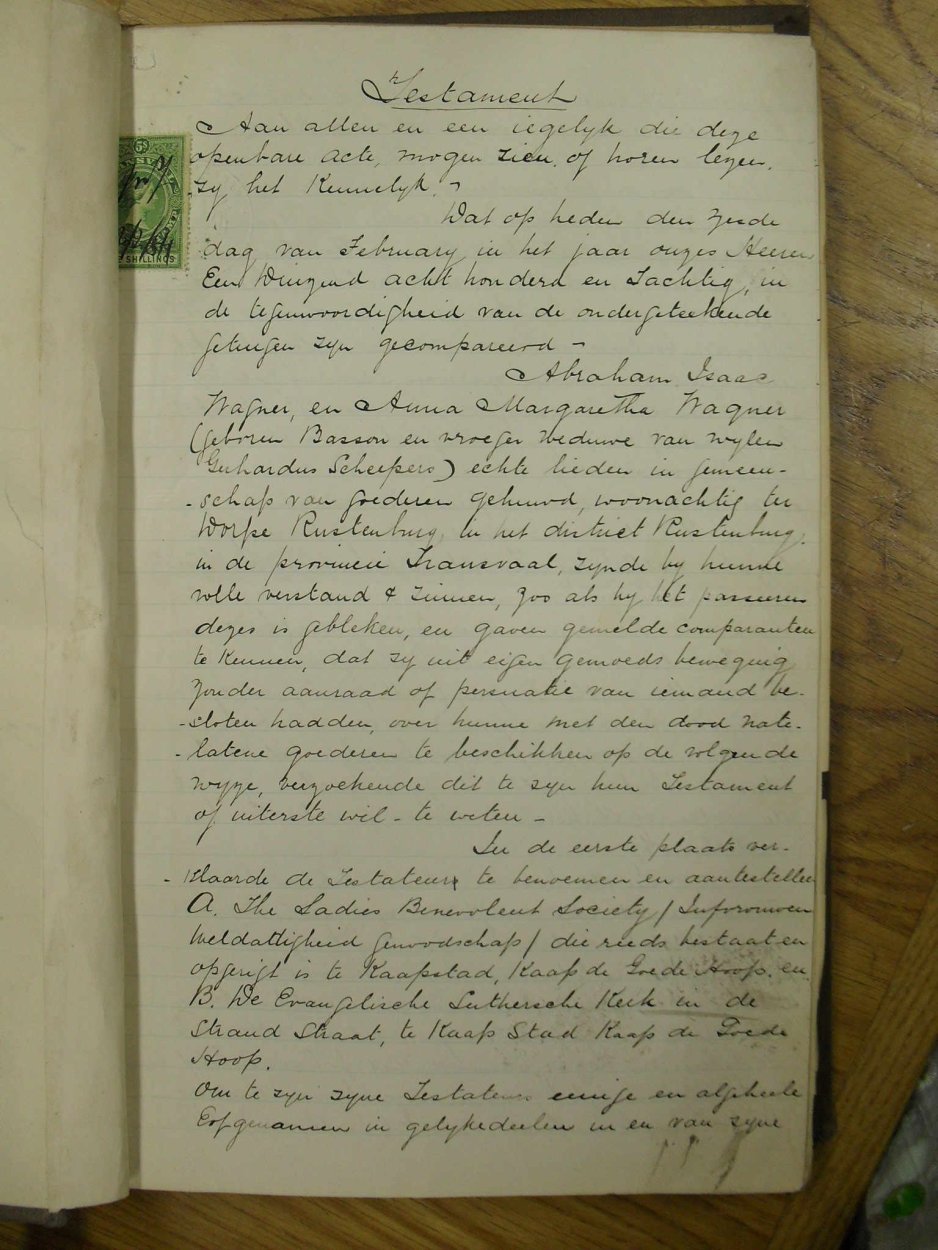 Testament
Aan allen en een iegelyk die deze
openbare acte, mogen zien of horen lezen,
zy het Kennelyk. -
Dat op heden den zesde
dag van February in het jaar onzes Heeren
Een Duizend acht honderd en Tachtig, in
de tegenwoordigheid van de ondergeteekende
getuigen zyn gecompareerd -
Abraham Isaac
Wagner, en Anna Margaretha Wagner
(geboren Basson en vroeger Weduwe van wylen
Gerhardus Scheepers) echte lieden in gemeen-
-schap van goederen gehuwd, woonachtig ter
Dorpe Rustenburg, in het district Rustenburg,
in de provincie Transvaal, zynde by hunne
volle verstand & zinnen, zoo als by het passeeren
dezes is gebleken, en gaven gemelde comparanten
te Kennen, dat zy uit eigen gemoeds beweging
zonder aanraad of persuatie van iemand be-
-sloten hadden, over hunne met den dood nate-
-latene goederen te beschikken op de volgende
wyze, verzoekende dit te zyn hun Testament
of uiterste wil - te weten -
In de eerste plaats ver-
-klaarde de Testateur te benoemen en aantestellen
A. The Ladies Benevolent Society / Jufvrouwen
Weldatigheid genoodschap / die reeds bestaat en
opgerigt is te Kaapstad, Kaap de Goede Hoop, en
B. De Evangelische Luthersche Kerk in de
Strand Straat, te Kaap Stad Kaap de Goede
Hoop.
Om te zyn zyne Testateurs eenige en algeheele
Erfgenamen in gelykedeelen in en van zyne
SHILLINGS